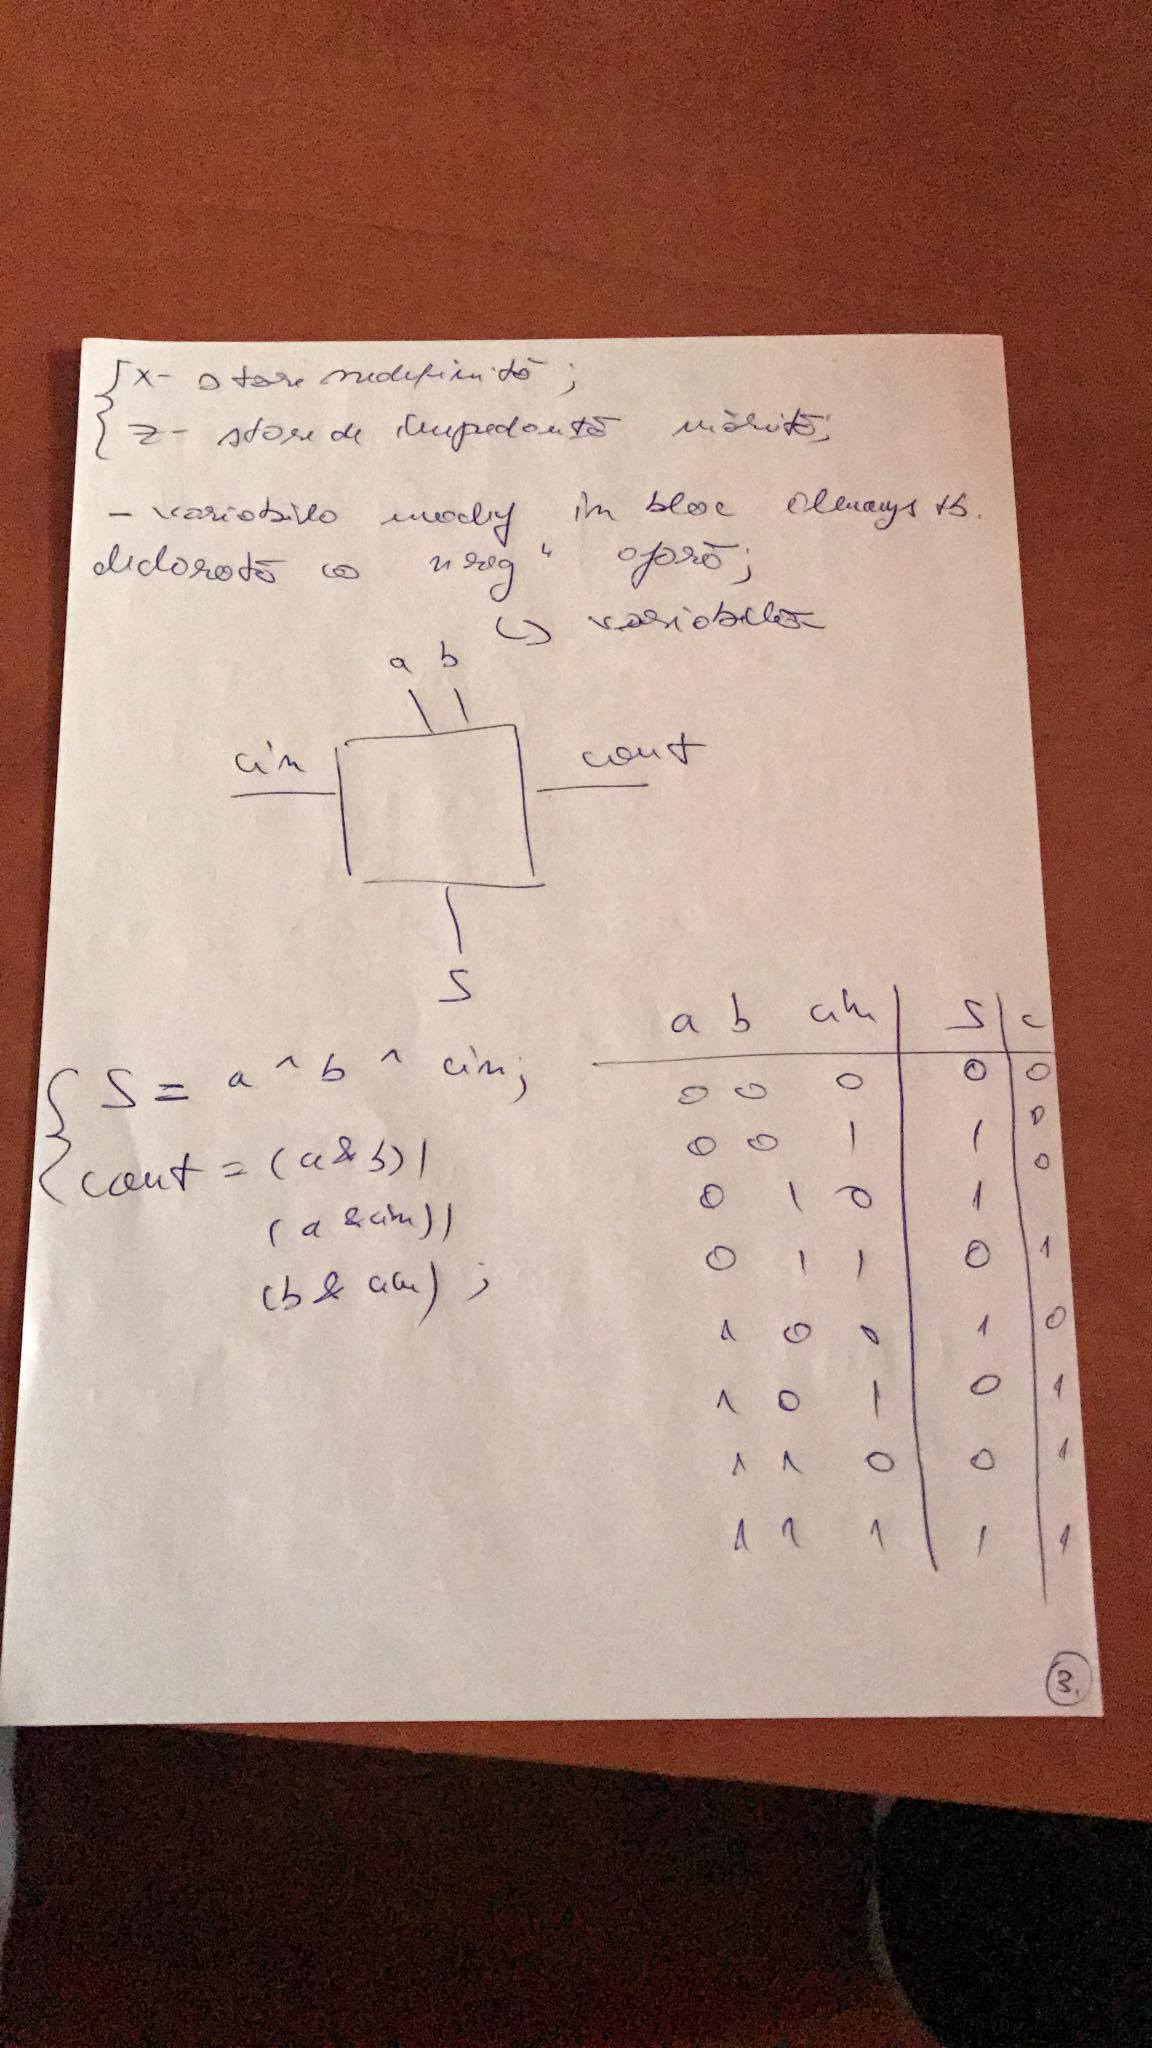 x- stare nedefinită;
z- stare de impedanță mărită;
- variabila modif în bloc always tb.
declarată ca "reg" afară;
↳ variabilă
a b
cin
cout
S
S = a ^ b ^ cin;
cout = (a & b) |
(a & cin) |
(b & cin);
a b cin S c
0 0 0 0 0
0 0 1 1 0
0 1 0 1 0
0 1 1 0 1
1 0 0 1 0
1 0 1 0 1
1 1 0 0 1
1 1 1 1 1
3.